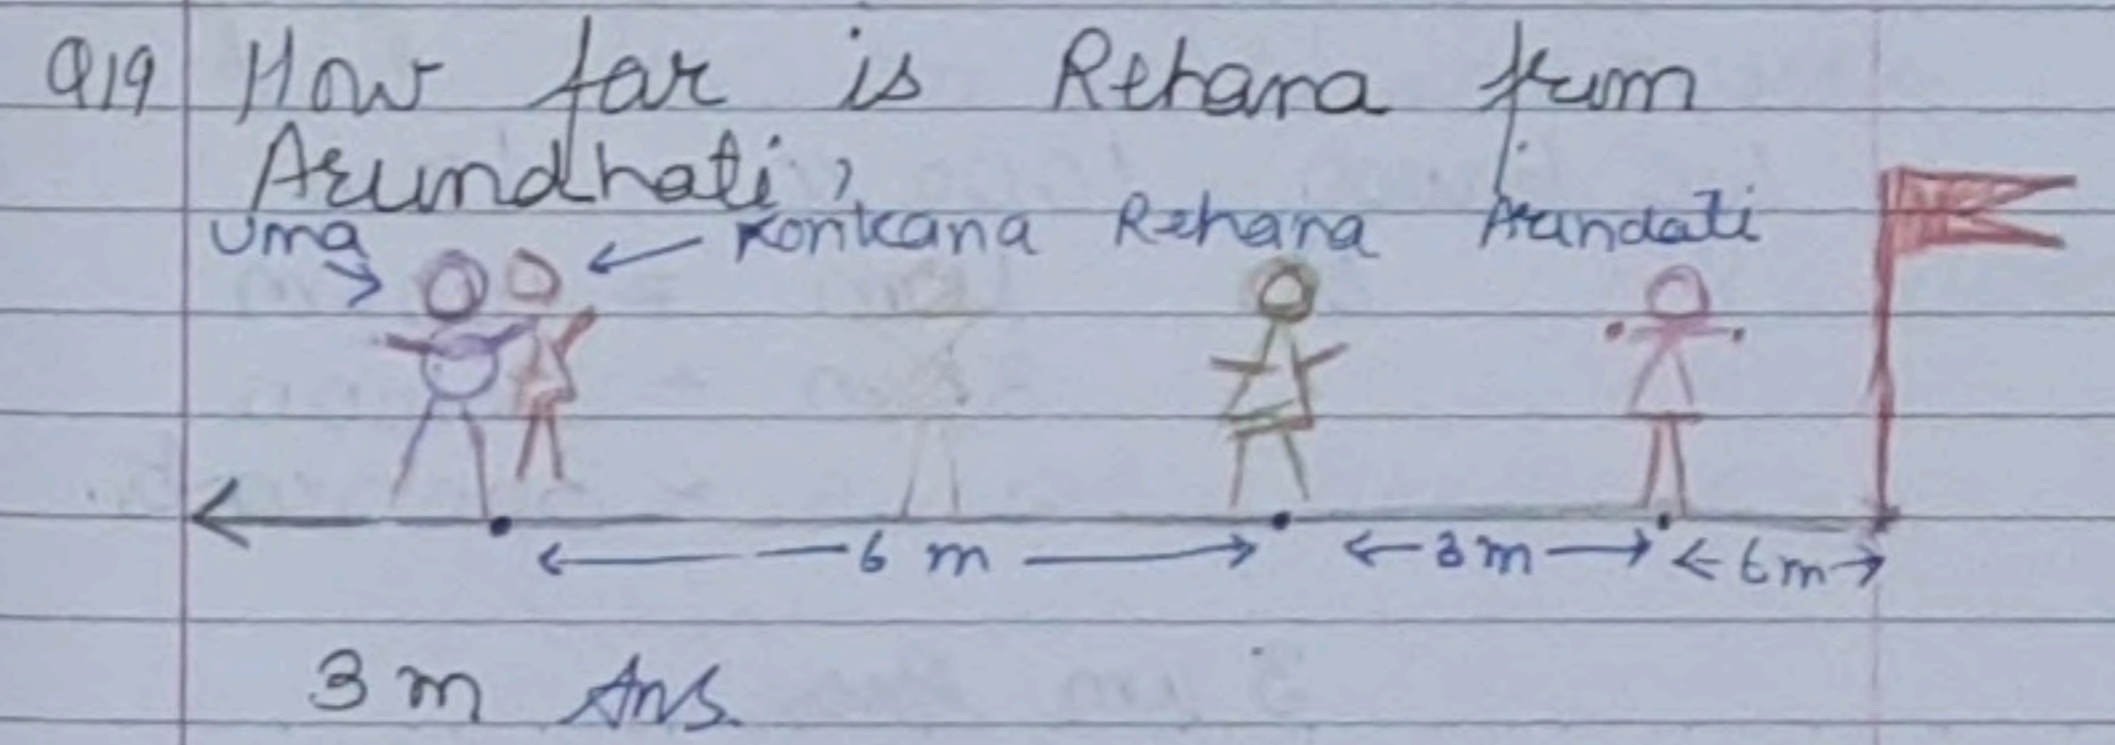 Q19 How far is Rehana frum
Arundhati?
Uma Konkana Rehana Arundati
6 m 3m 6m
3 m Ans.